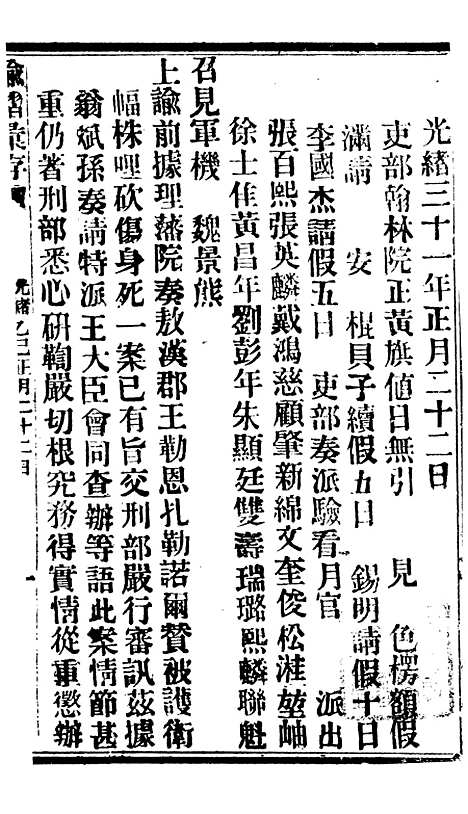 光緒三十一年正月二十二日
吏部翰林院正黃旗値日無引　見　色楞額假
滿請　安　棍貝子續假五日　錫明請假十日
李國杰請假五日　吏部奏派驗看月官　派出
張百熙張英麟戴鴻慈顧肇新綿文奎俊松溎堃岫
徐士佳黃昌年劉彭年朱顯廷雙壽瑞璐熙麟聯魁
召見軍機　魏景熊
上諭前據理藩院奏敖漢郡王勒恩扎勒諾爾贊被護衛
幅株哩砍傷身死一案已有旨交刑部嚴行審訊茲據
翁斌孫奏請特派王大臣會同查辦等語此案情節甚
重仍著刑部悉心硏鞫嚴切根究務得實情從重懲辦
諭摺彙存
光緒乙巳正月二十二日
一